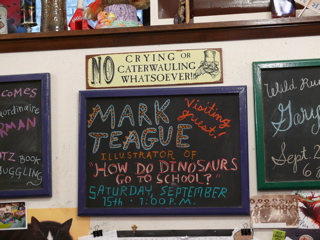 NO CRYING OR
CATERWAULING
WHATSOEVER!
MARK
TEAGUE
Visiting
guest!
ILLUSTRATOR OF
"HOW DO DINOSAURS
GO TO SCHOOL?"
SATURDAY, SEPTEMBER
15th · 1:00 P.M.
COMES
RMAN
OTZ BOOK
UGGLING
Wild Rum
Gary
Sept 2